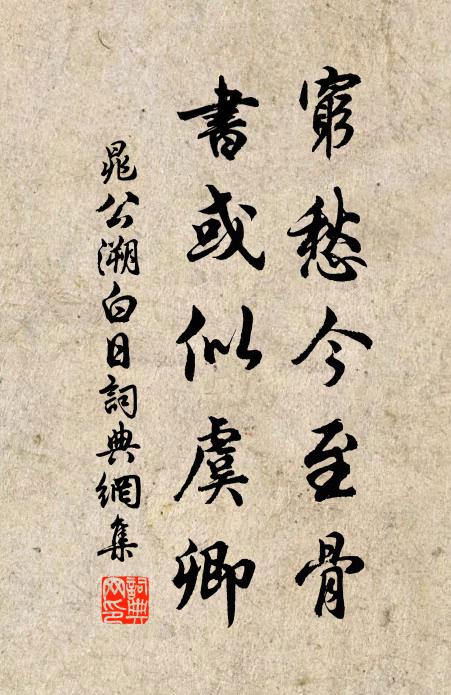 窮愁今至骨
書或似虞卿
晁公溯白日詞典網集
詞典網印